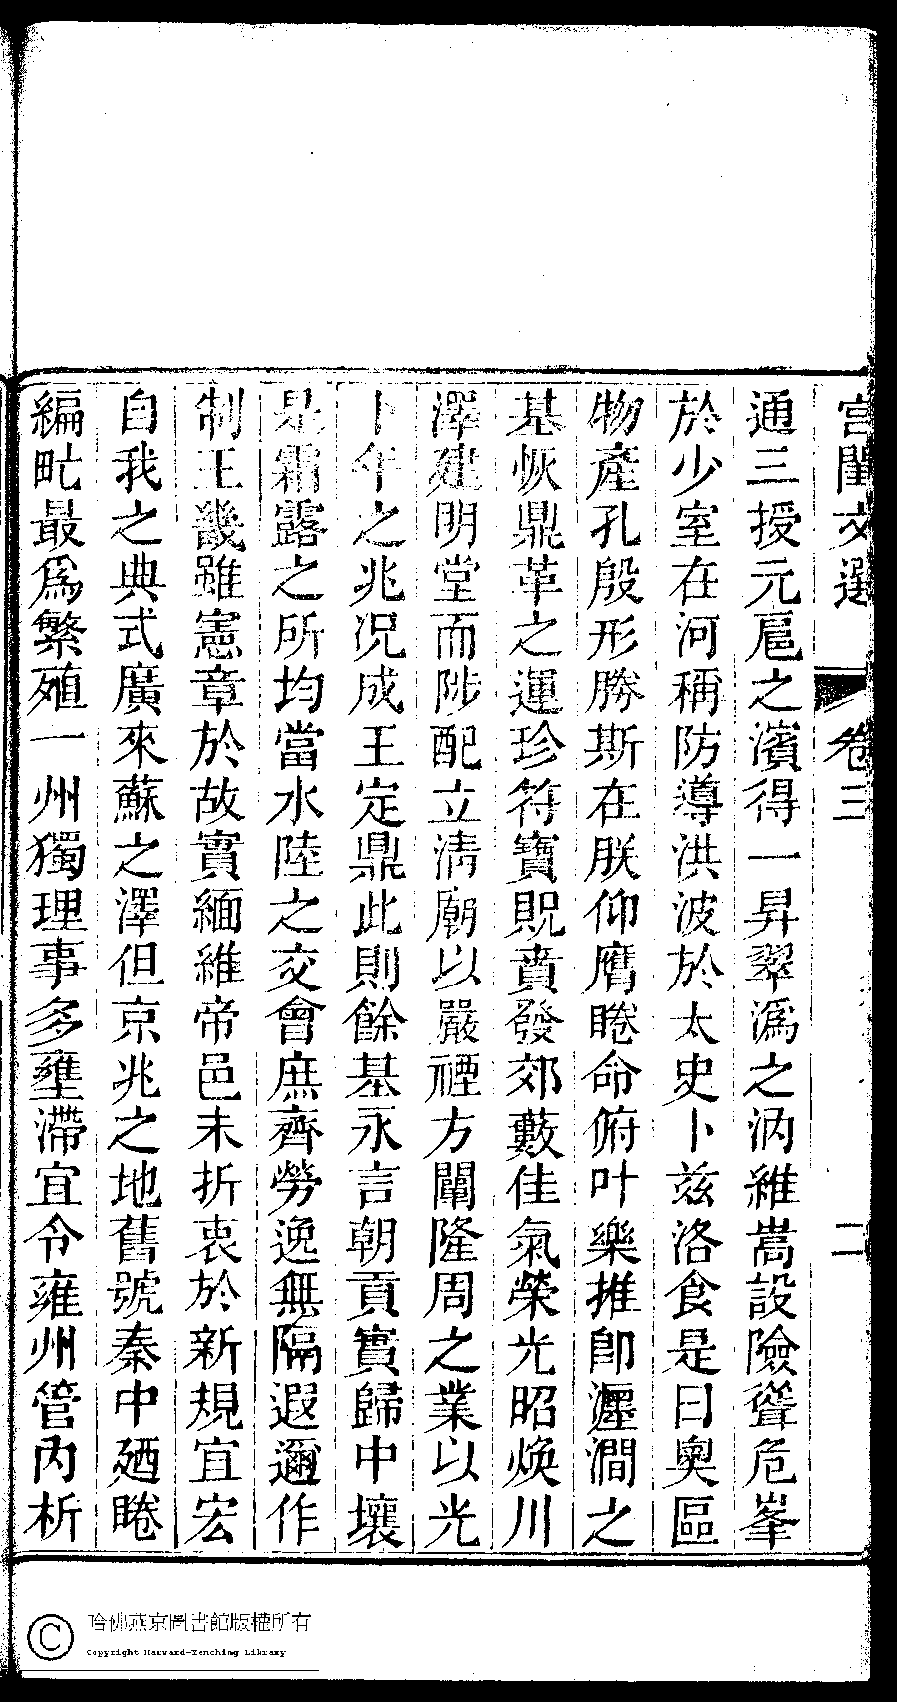 宮閨文選 卷三 二
通三授元扈之濱得一昇翠潙之汭維嵩設險聳危峯
於少室在河稱防導洪波於太史卜兹洛食是曰奧區
物產孔殷形勝斯在朕仰膺睠命俯叶樂推卽瀍澗之
基恢鼎革之運珍符寶貺賁發郊藪佳氣榮光昭煥川
澤建明堂而陟配立淸廟以嚴禋方闡隆周之業以光
卜年之兆況成王定鼎此則餘基永言朝貢實歸中壤
是霜露之所均當水陸之交會庶齊勞逸無隔遐邇作
制王畿雖憲章於故實緬維帝邑未折衷於新規宜宏
自我之典式廣來蘇之澤但京兆之地舊號秦中廼睠
編甿最爲繁殖一州獨理事多壅滯宜令雍州管內析
哈佛燕京圖書館版權所有
Copyright Harvard-Yenching Library